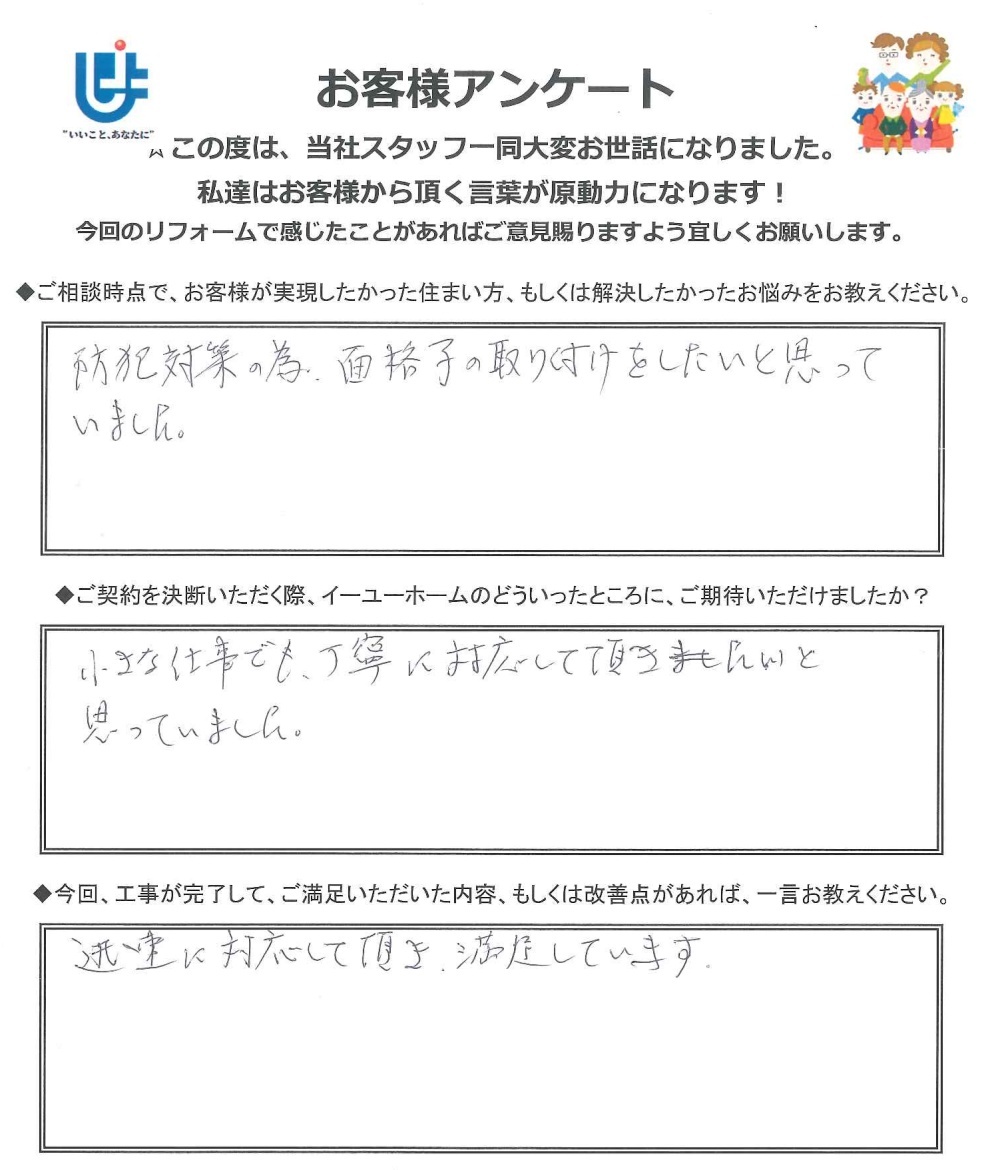 お客様アンケート
"いいこと、あなたに"
この度は、当社スタッフ一同大変お世話になりました。
私達はお客様から頂く言葉が原動力になります！
今回のリフォームで感じたことがあればご意見賜りますよう宜しくお願いします。
◆ご相談時点で、お客様が実現したかった住まい方、もしくは解決したかったお悩みをお教えください。
防犯対策の為、面格子の取り付けをしたいと思って
いました。
◆ご契約を決断いただく際、イーユーホームのどういったところに、ご期待いただけましたか？
小さな仕事でも、丁寧に対応して頂きたいと
思っていました。
◆今回、工事が完了して、ご満足いただいた内容、もしくは改善点があれば、一言お教えください。
迅速に対応して頂き、満足しています。